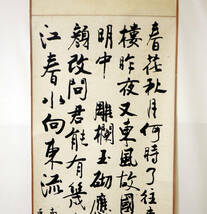 春花秋月何時了往
樓昨夜又東風故國
明中 雕欄玉砌應
顏改問君能有幾
江春水向東流